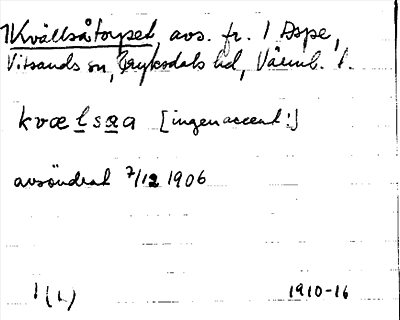 Kvällsåtorpet avs. fr. 1 Aspe,
Vitsands sn, Fryksdals hd, Värml. l.
kvælsaa [ingen accent!]
avsöndrat 7/12 1906
1 (L)
1910-16